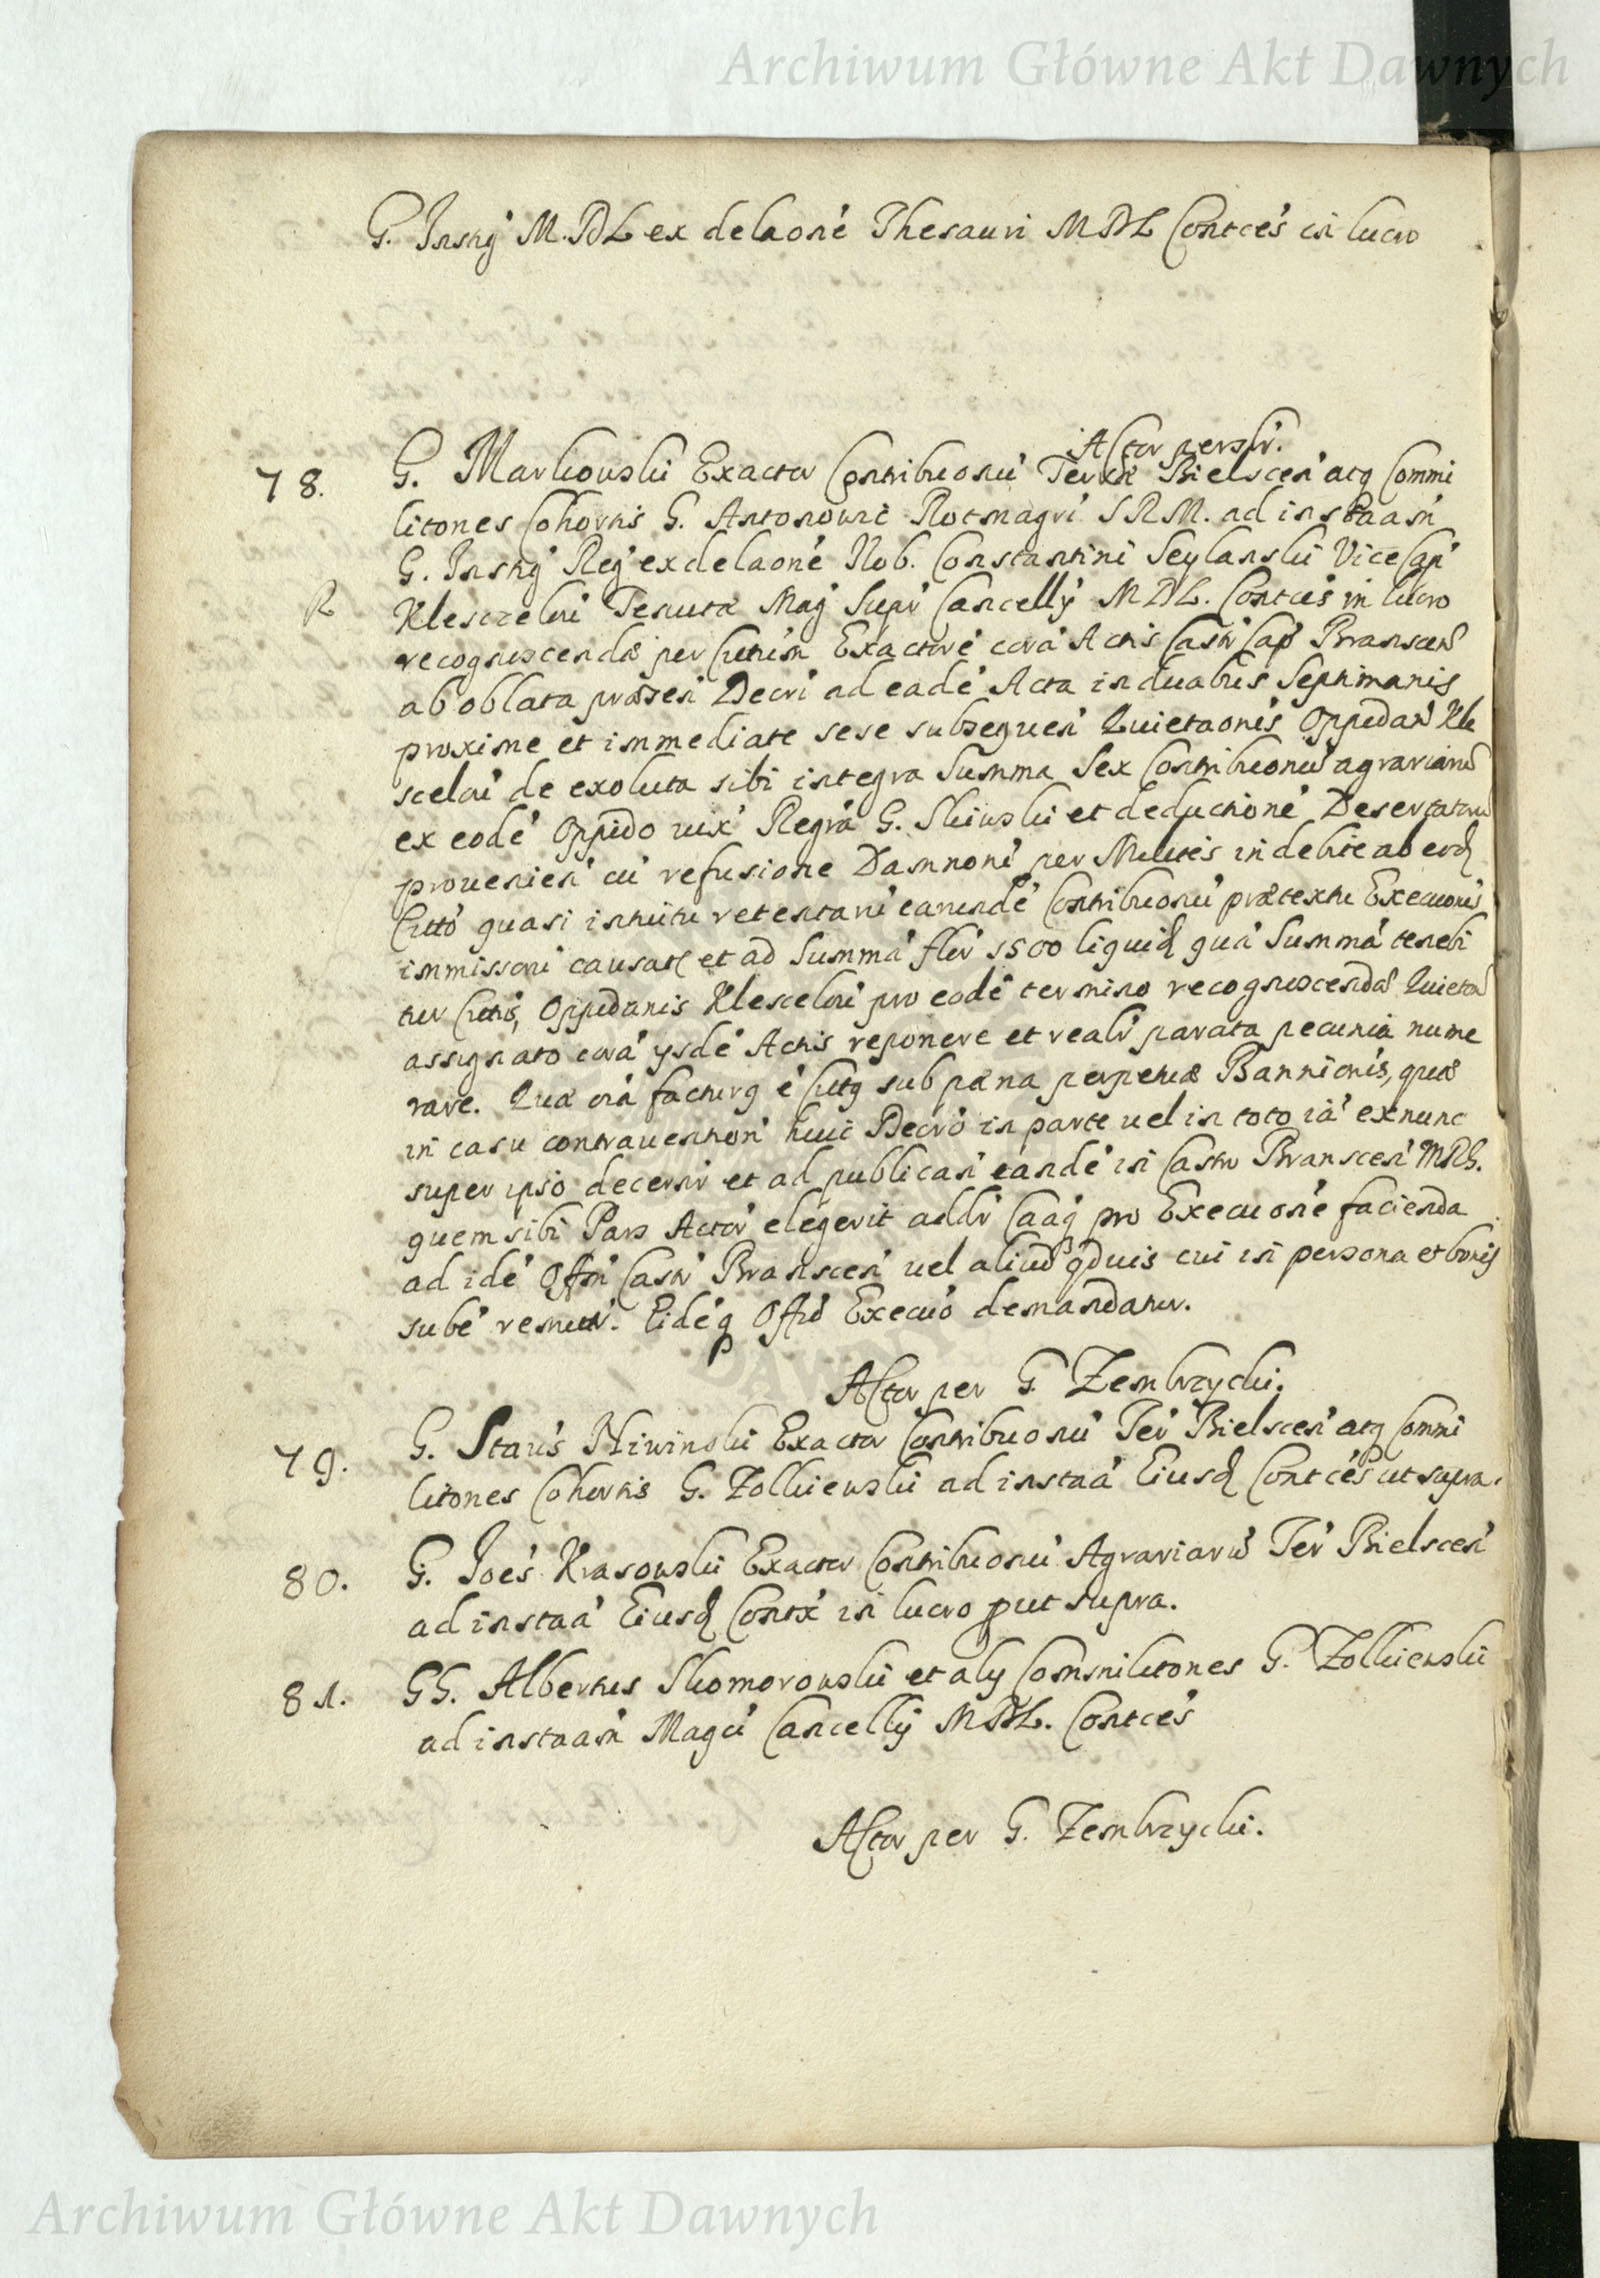 Archiwum Główne Akt Dawnych
G. Instig̃ M.D.L ex delaoné Thesauri M.D.L Contces in lucro
Actor per
78. G. Markowski Exactor Contribuonũ Terræ Bielscen̄ atq Commi
litones Cohortis G. Antonowic Rotmagrĩ S R M. ad instaam
G. Instig̃ Reg̃ ex delaoné Nob. Constantini Seylanski Vice Cap̃
R Kleszcelouĩ Tenuta Mag̃ Supr̃ Cancellÿ M D L. Contces in lucro
recognoscendæ per Exactoré corá Actis Castr̃ Cap̃ Branscen̄
ab oblata præsen̄ Decrĩ ad eadé Acta in duabus Septimanis
proxime et immediate sese subsequen̄ Quietaonis Oppidan̄ Kle
scelouĩ de exoluta sibi integra Summa Sex Contribuonũ agrariarũ
ex eodé Oppido Regrã G. Sliwski et deductioné Desertatarũ
prouenien̄ cũ refusione Damnonũ per Milites indebite ab
quasi intuitu retentarũ earundé Contribuonũ prætextu Execuonis
immissorũ causat et ad Summã flor̃ 1500 liquid quã Summã tenebi
tur Oppidanis Klescelouĩ pro eodé termino recognoscendæ
assignato corá ÿsdé Actis reponere et realr̃ parata pecunia nume
rare. Quæ oĩa facturq é sub pæna perpetuæ Bannionis, quæ
in casu contrauention̄ huic Decrõ in parte uel in toto iã exnunc
super ipso decernr̃ et ad publican̄ eandé in Castro Branscen̄ MRG.
quem sibi Pars Actor̃ elegerit addr̃ Caaq pro Execuoné facienda
ad idé Offm̃ Castr̃ Branscen̄ uel aliud qduis cui in persona et bonis
subé remittr̃. Eidéq Offo Execuo demandatur.
Actor per G. Zembrzycki.
79. G. Stanis Niwinski Exactor Contribuonũ Ter̃ Bielscen̄ atq Commi
litones Cohortis G. Zolkiewski ad instaã Eiusd Contces ut supra.
80. G. Joés Krasowski Exactor Contribuonũ Agrariarũ Ter̃ Bielscen̄
ad instaã Eiusd Contx in lucro put supra.
81. GG. Albertus Skomorowski et alÿ Commilitones G. Zolkiewski
ad instaam Magci Cancellÿ M D L. Contces
Actor per G. Zembrzycki.
Archiwum Główne Akt Dawnych